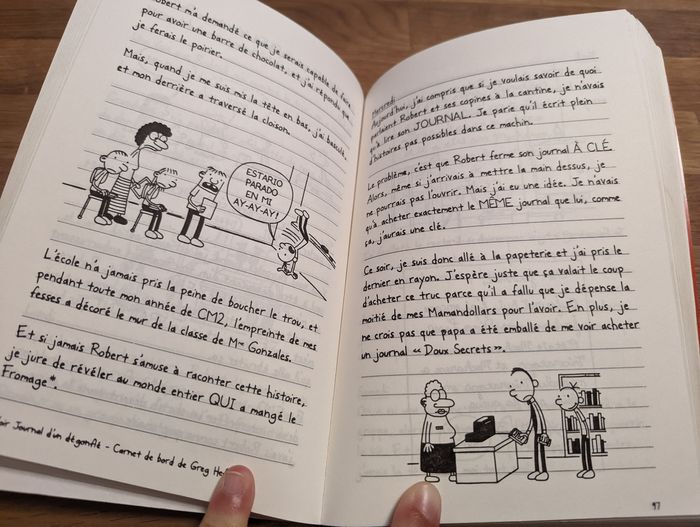 Robert m'a demandé ce que je serais capable de faire
pour avoir une barre de chocolat, et j'ai répondu que
je ferais le poirier.
Mais, quand je me suis mis la tête en bas, j'ai basculé,
et mon derrière a traversé la cloison.
ESTARIO
PARADO
EN MI
AY-AY-AY!
L'école n'a jamais pris la peine de boucher le trou, et
pendant toute mon année de CM2, l'empreinte de mes
fesses a décoré le mur de la classe de Mme Gonzales.
Et si jamais Robert s'amuse à raconter cette histoire,
je jure de révéler au monde entier QUI a mangé le
Fromage*.
Journal d'un dégonflé - Carnet de bord de Greg
Mercredi
Aujourd'hui, j'ai compris que si je voulais savoir de quoi
parlaient Robert et ses copines à la cantine, je n'avais
qu'à lire son JOURNAL. Je parie qu'il écrit plein
d'histoires pas possibles dans ce machin.
Le problème, c'est que Robert ferme son journal À CLÉ.
Alors, même si j'arrivais à mettre la main dessus, je
ne pourrais pas l'ouvrir. Mais j'ai eu une idée. Je n'avais
qu'à acheter exactement le MÊME journal que lui, comme
ça, j'aurais une clé.
Ce soir, je suis donc allé à la papeterie et j'ai pris le
dernier en rayon. J'espère juste que ça valait le coup
d'acheter ce truc parce qu'il a fallu que je dépense la
moitié de mes Mamandollars pour l'avoir. En plus, je
ne crois pas que papa a été emballé de me voir acheter
un journal « Doux Secrets ».
97